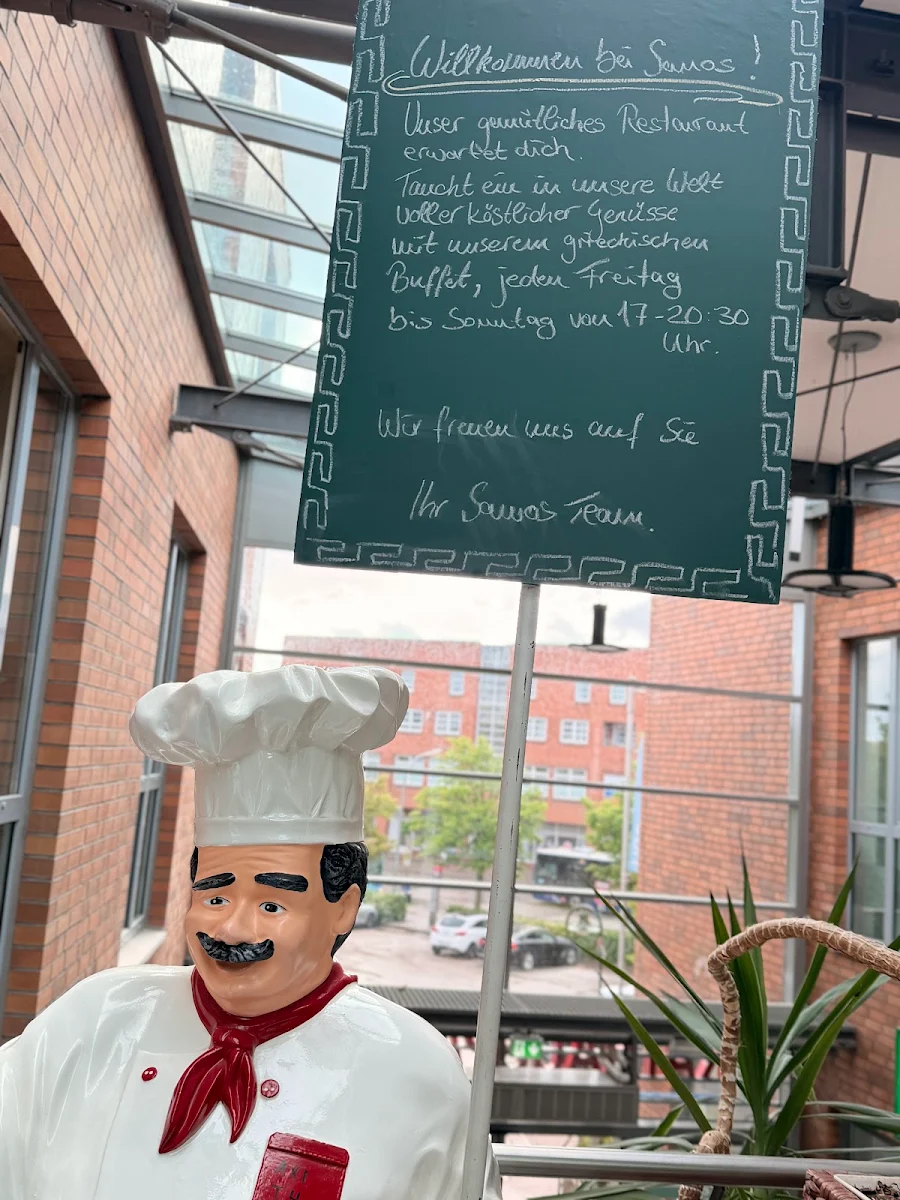 Willkommen bei Samos!
Unser gemütliches Restaurant
erwartet dich.
Taucht ein in unsere Welt
voller köstlicher Genüsse
mit unserem griechischen
Buffet, jeden Freitag
bis Sonntag von 17-20:30
Uhr.
Wir freuen uns auf Sie
Ihr Samos Team.